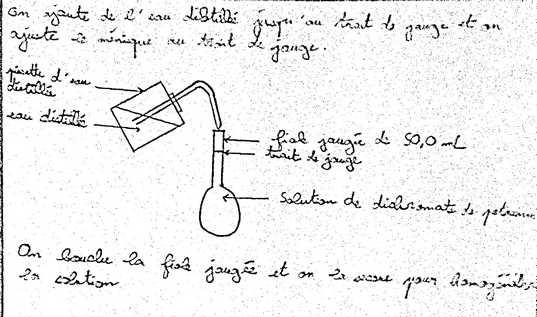 on ajoute de l'eau distillé jusqu'au trait de jauge et on
ajuste le ménisque au trait de jauge.
pissette d'eau
distillée
eau distillée
fiole jaugée de 50,0 mL
trait de jauge
Solution de dichromate de potassium
On bouche la fiole jaugée et on la secoue pour homogénéiser
la solution